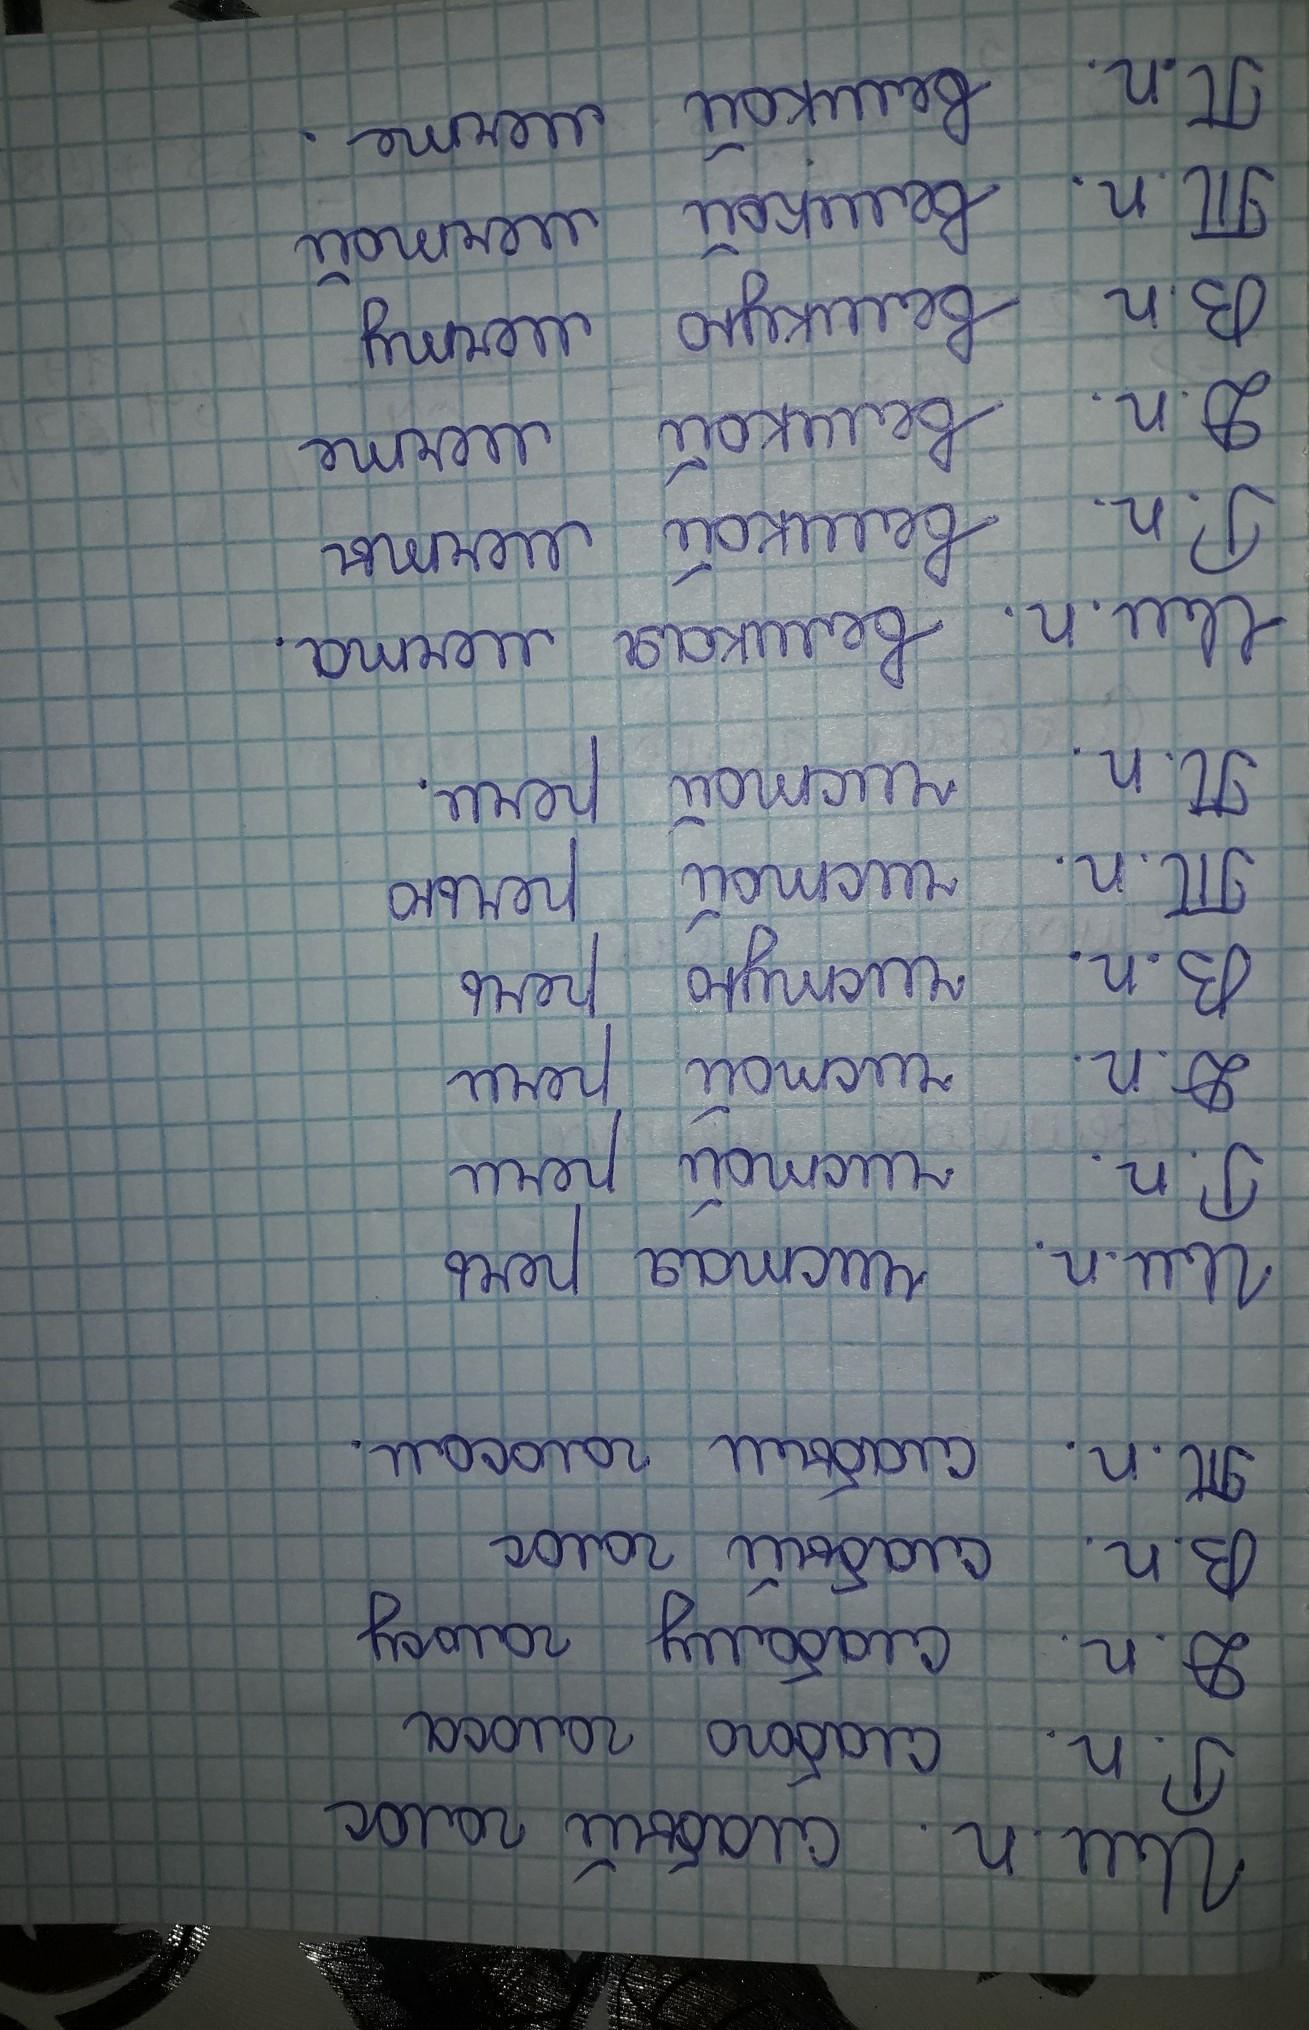 Им.п. слабый голос
Р.п. слабого голоса
Д.п. слабому голосу
В.п. слабый голос
Тв.п. слабым голосом.
Им.п. чистая речь
Р.п. чистой речи
Д.п. чистой речи
В.п. чистую речь
Тп.п. чистой речью
П.п. чистой речи.
Им.п. великая мечта.
Р.п. великой мечты
Д.п. великой мечте
В.п великую мечту
Тп.п. великой мечтой
П.п. великой мечте.